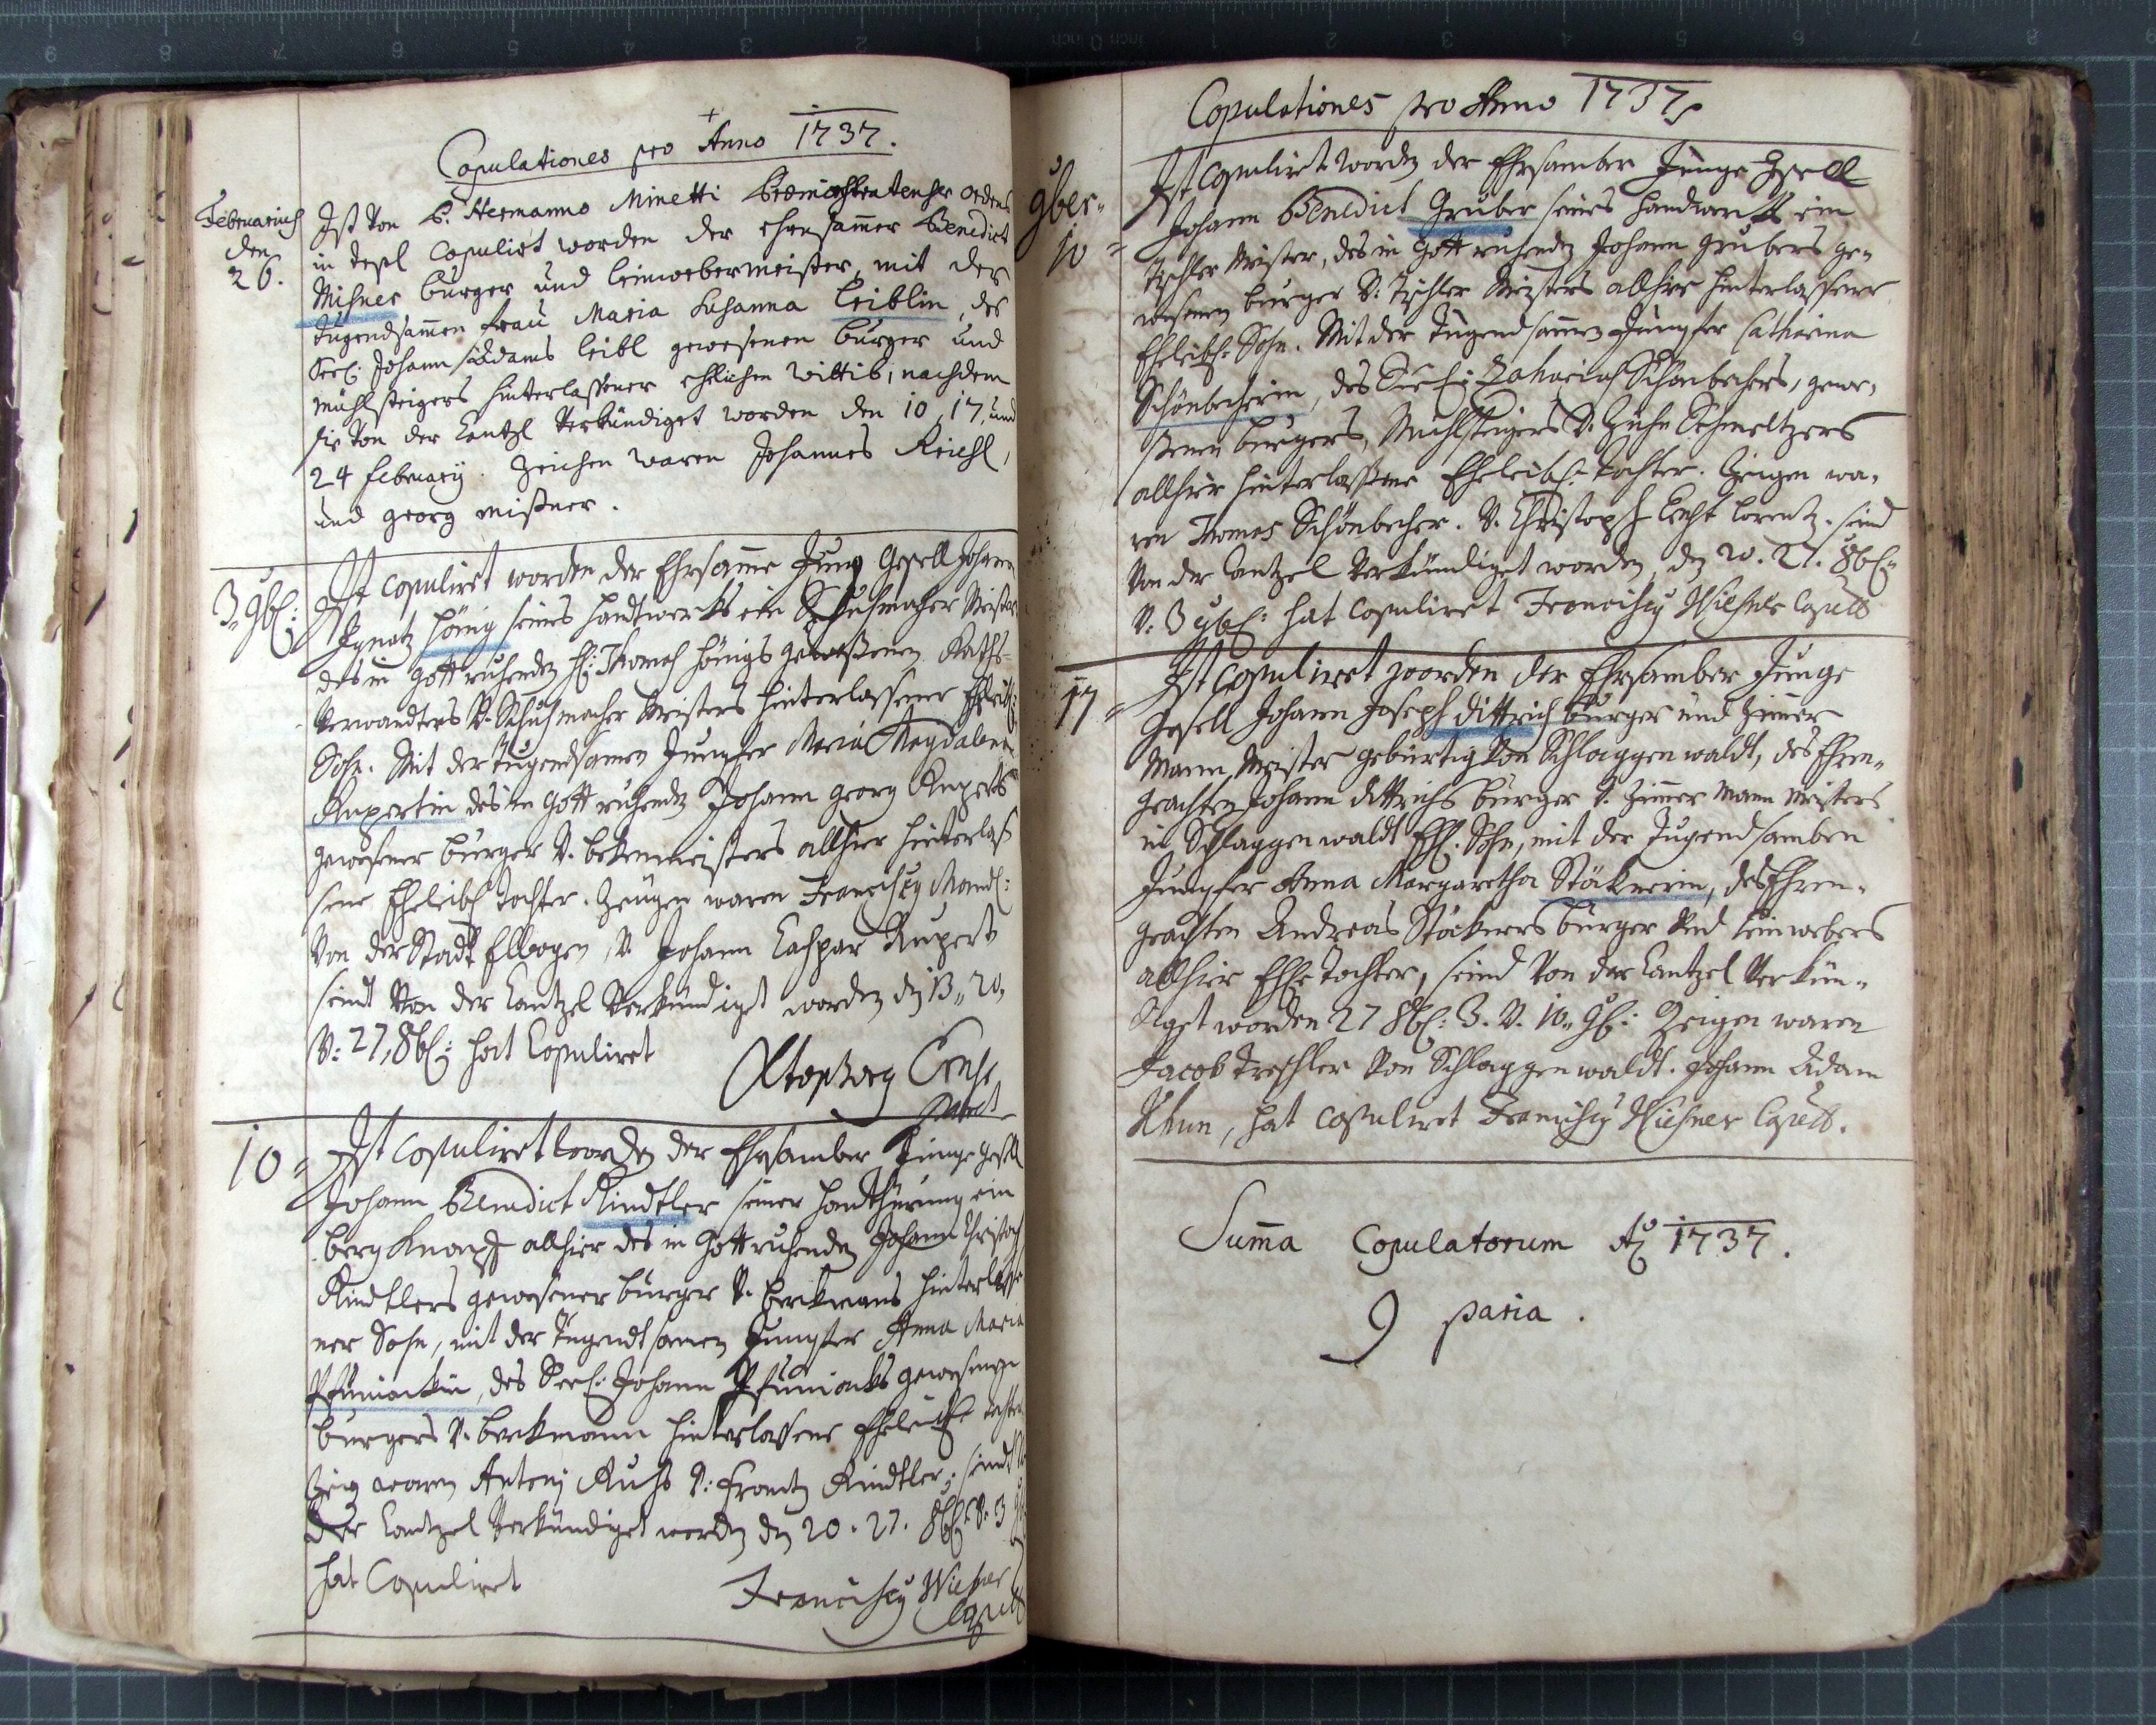 Copulationes pro Anno 1737.
Februarius
den
26.
Ist von P. Hermanno Minetti Præmonstratenser ordens
in Tepl Copulirt worden der ehrsammer Benedict
Mißner burger und leinwebermeister, mit der
Tugendsammen frau Maria Susanna Leiblin, des
Seel: Johann Adams leibl gewesenen burger und
Mühlsteigers hinterlaßener ehelichen wittib, nachdem
sie von der Cantzl verkündiget worden den 10, 17, und
24 february. Zeichen waren Johannes Riehl,
und georg mißner.
3. 9b:
Ist copuliret worden der Ehrsamme Jung Gesell Johann
Ignatz Hönig seines Handtwercks ein Schuhmacher Meister
des in Gott ruhendten H: Thomas Hönigs geweßenen Raths-
verwandters V. Schuhmacher Meisters hinterlassener Eheleibl:
Sohn. Mit der Tugendsamen Jungfer Maria Magdalena
Rupertin des in Gott ruhendten Johann Georg Ruperts
gewesener burger V. bekenmeisters allhier hinterlaß
sene Eheleibl Tochter. Zeugen waren Franciscq Mandl:
von der Stadt Ellbogen, V. Johann Caspar Rupert
seindt von der Cantzel verkündiget worden den 13., 20,
V: 27, 8b: hat Copuliret
10=
Ist Copuliret worden der Ehrsamber Junge gesell
Johann Benedict Kindtler seiner handthürung ein
berg Knapp allhier des in Gott ruhenden Johann Christoph
Kindtlers gewesener burger V. berkmans hinterlasse
ner Sohn, mit der Tugendt samen Jungfer Anna Maria
Pfüniockin, des Seel: Johann Pfüniocks gewesenen
burgers V. berkmann hinterlassene Eheleibl. Tochter
Zeig waren Antonj Kuhs V: Frantz Kindtler; seindt
der Cantzel verkündiget worden den 20. 27. 8b V. 3
hat Copuliret
Franciscq Wießner
Copulationes pro Anno 1737.
9ber=
10=
Ist Copulirt worden der Ehrsamber Junge Gsell
Johann Benedict Gruber seines handwerks ein
Tischler Meister, des in Gott ruhenden Johann Grubers ge-
wesenen burger V: Tischler Meisters allhier hinterlassener
Eheleibl: Sohn. Mit der Tugendsamen Jungfer Catharina
Schönbecherin, des Seel: Zacharias Schönbechers, gewe-
ßenen burgers, Muhlsteigers V. Zihn Schmeltzers
allhier hinterlaßene Eheleibl: Tochter. Zeigen wa-
ren Thomas Schönbecher. V. Christoph Lorentz. seind
von der Cantzel verkündiget worden, den 20. 27. 8b:
V: 3 9b: hat Copuliret Franciscq Wießner
17=
Ist Copuliret worden der Ehrsamber Junge
Gesell Johann Joseph Dittrich burger und Zimer
Mann Meister gebürtig von Schlaggenwaldt, des Ehren-
geachten Johann Dittrichs burger V. Zimer Mann Meisters
in Schlaggenwaldt Ehl. Sohn, mit der Tugendsamben
Jungfer Anna Margaretha Stöcknerin, des Ehren-
geachten Andreas Stöckners burger und leinwebers
allhier Ehl Tochter, seind von der Cantzel verkün-
diget worden 27 8b: 3. V. 10. 9b: Zeigen waren
Jacob Treshler von Schlaggenwaldt. Johann Adam
Khun, hat copuliret Franciscq Wießner
Suma Copulatorum Ao 1737.
9 paria.